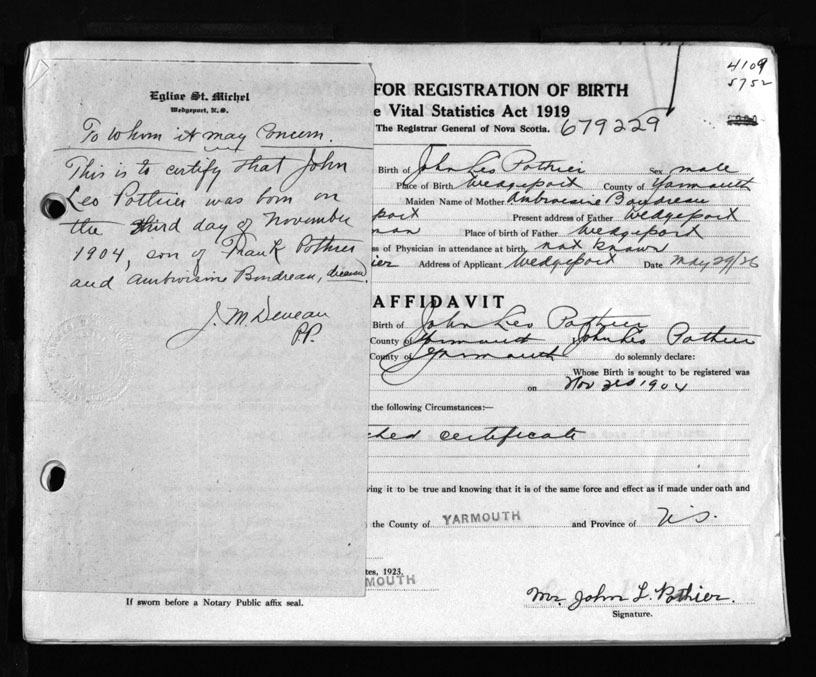 Eglise St. Michel
Wedgeport, N. S.
To whom it may concern.
This is to certify that John
Leo Pothier was born on
the third day of November
1904, son of Frank Pothier
and Ambroisine Boudreau,
J. M. Deveau
P.P.
4109
5752
FOR REGISTRATION OF BIRTH
e Vital Statistics Act 1919
The Registrar General of Nova Scotia. 679229
Birth of John Leo Pothier Sex male
Place of Birth Wedgeport County of Yarmouth
Maiden Name of Mother Ambroisine Boudreau
port Present address of Father Wedgeport
man Place of birth of Father Wedgeport
ss of Physician in attendance at birth not known
ier Address of Applicant Wedgeport Date May 29/26
AFFIDAVIT
Birth of John Leo Pothier
County of Yarmouth John Leo Pothier
County of Yarmouth do solemnly declare:
Whose Birth is sought to be registered was
on Nov 3rd 1904
the following Circumstances:—
ched certificate
ving it to be true and knowing that it is of the same force and effect as if made under oath and
the County of YARMOUTH and Province of N.S.
tes, 1923.
MOUTH
If sworn before a Notary Public affix seal.
Mr. John L. Pothier.
Signature.